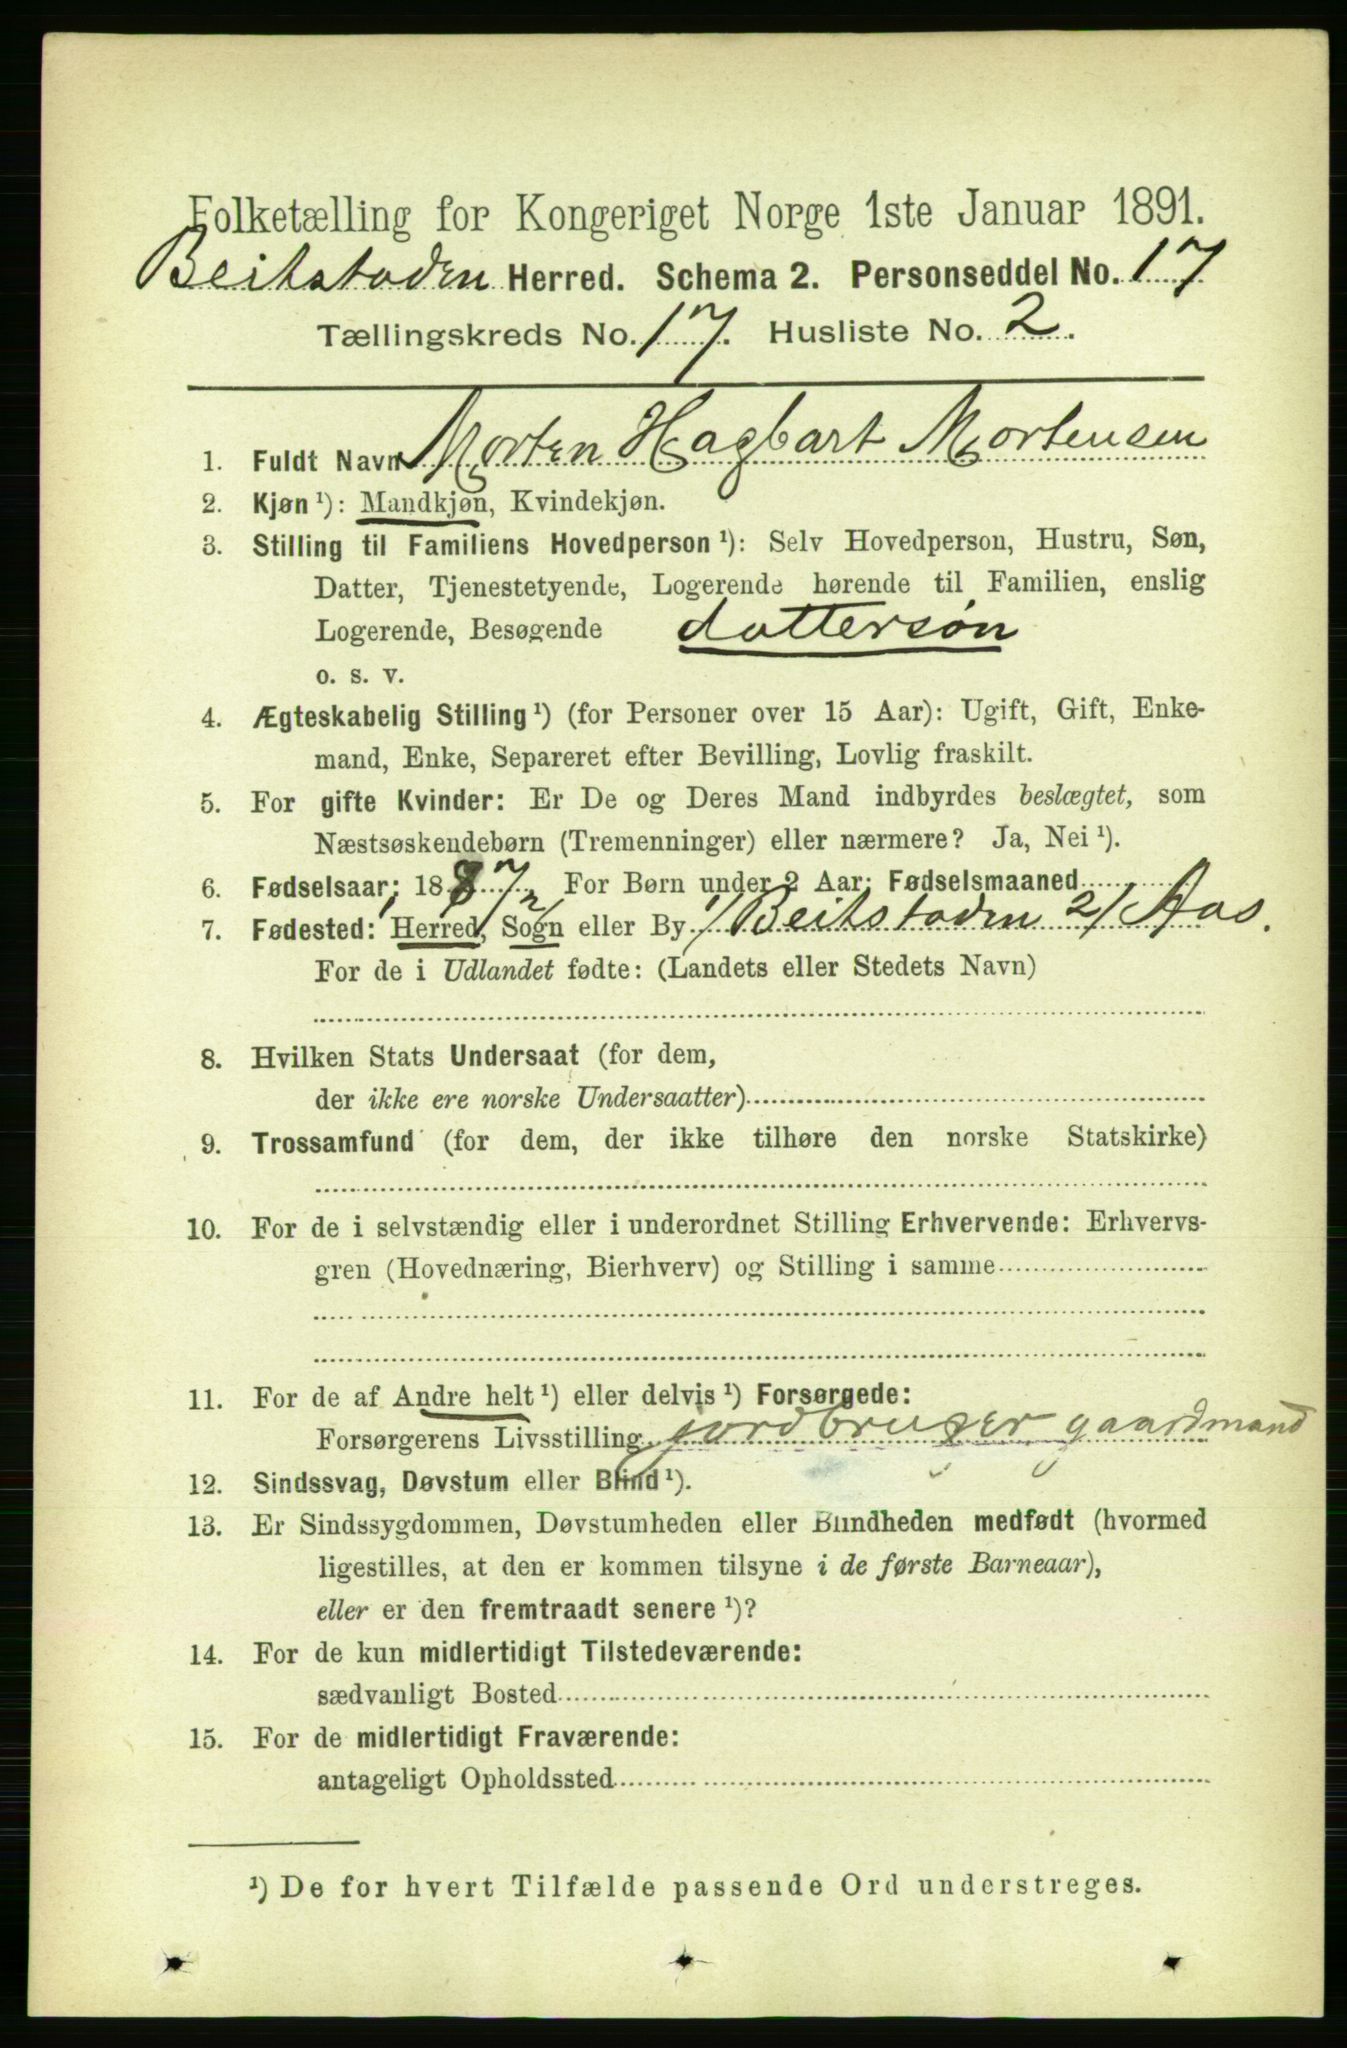 Folketælling for Kongeriget Norge 1ste Januar 1891.
Beitstaden Herred. Schema 2. Personseddel No. 17
Tællingskreds No. 17. Husliste No. 2.
1. Fuldt Navn Morten Hagbart Mortensen
2. Kjøn ¹): Mandkjøn, Kvindekjøn.
3. Stilling til Familiens Hovedperson ¹): Selv Hovedperson, Hustru, Søn,
Datter, Tjenestetyende, Logerende hørende til Familien, enslig
Logerende, Besøgende dattersøn
o. s. v.
4. Ægteskabelig Stilling ¹) (for Personer over 15 Aar): Ugift, Gift, Enke-
mand, Enke, Separeret efter Bevilling, Lovlig fraskilt.
5. For gifte Kvinder: Er De og Deres Mand indbyrdes beslægtet, som
Næstsøskendebørn (Tremenninger) eller nærmere? Ja, Nei ¹).
6. Fødselsaar: 1887. For Børn under 2 Aar: Fødselsmaaned
7. Fødested: 1/ Herred, 2/ Sogn eller By 1/ Beitstaden 2/ Aas.
For de i Udlandet fødte: (Landets eller Stedets Navn)
8. Hvilken Stats Undersaat (for dem,
der ikke ere norske Undersaatter)
9. Trossamfund (for dem, der ikke tilhøre den norske Statskirke)
10. For de i selvstændig eller i underordnet Stilling Erhvervende: Erhvervs-
gren (Hovednæring, Bierhverv) og Stilling i samme
11. For de af Andre helt ¹) eller delvis ¹) Forsørgede:
Forsørgerens Livsstilling jordbruger gaardmand
12. Sindssvag, Døvstum eller Blind ¹).
13. Er Sindssygdommen, Døvstumheden eller Blindheden medfødt (hvormed
ligestilles, at den er kommen tilsyne i de første Barneaar),
eller er den fremtraadt senere ¹)?
14. For de kun midlertidigt Tilstedeværende:
sædvanligt Bosted
15. For de midlertidigt Fraværende:
antageligt Opholdssted
¹) De for hvert Tilfælde passende Ord understreges.